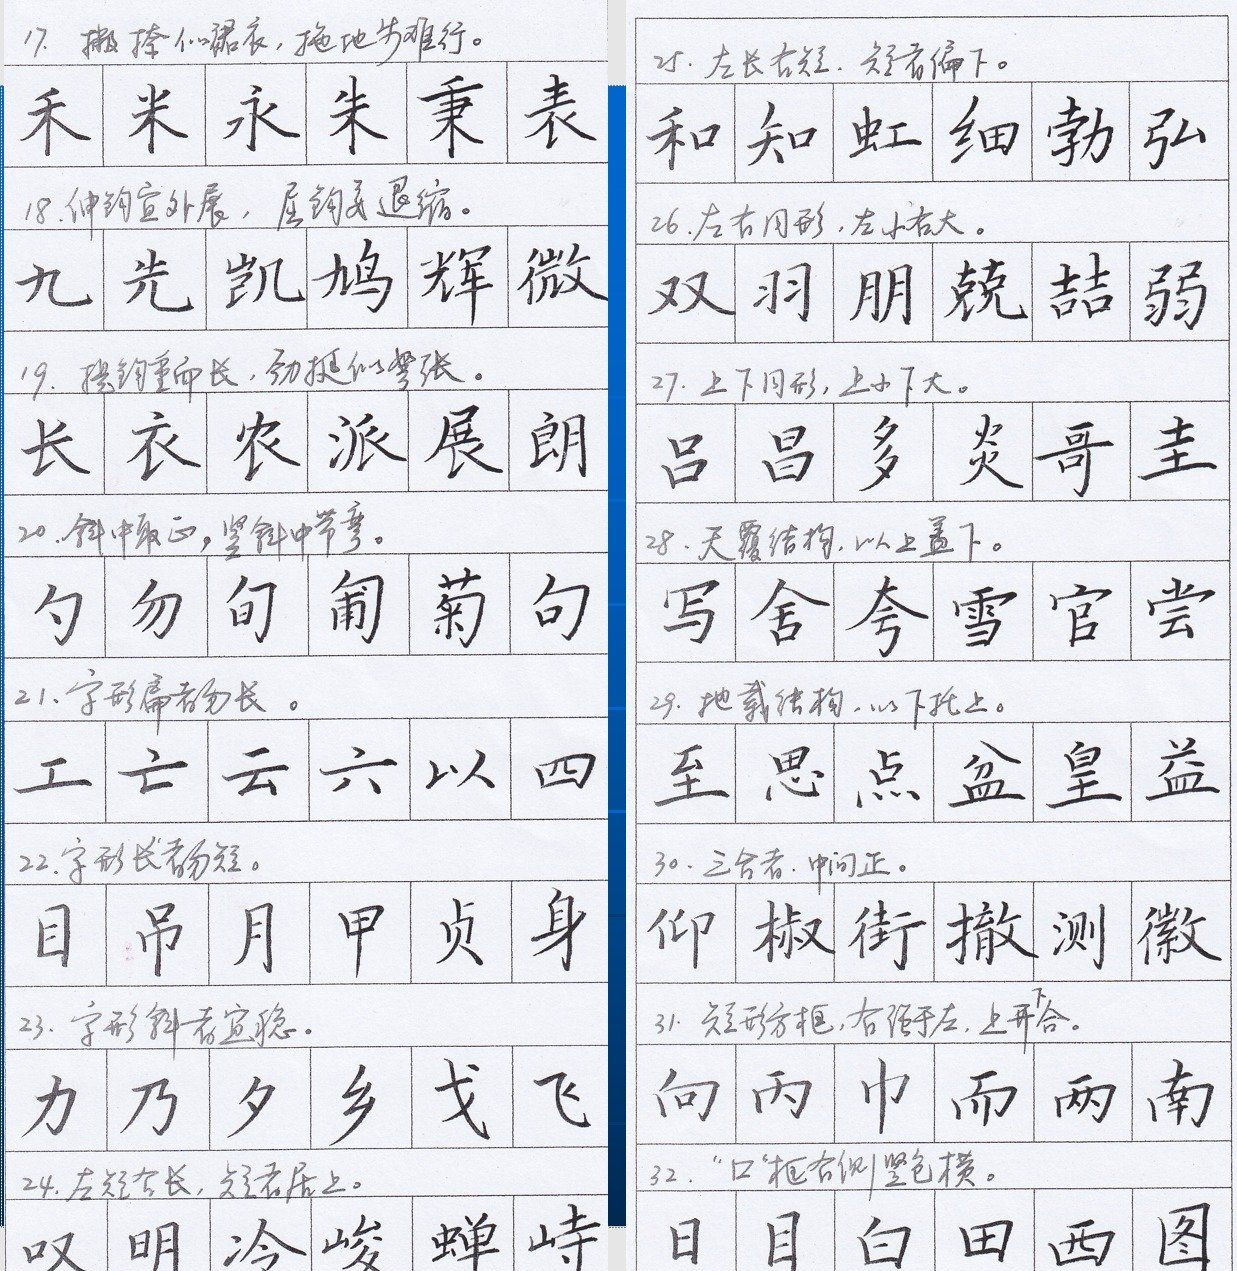 17. 撇捺似裙衣,拖地步难行。
禾 米 永 朱 秉 表
18. 伸钩宜外展,屈钩美退缩。
九 先 凯 鸠 辉 微
19. 提钩重而长,劲挺似弩张。
长 衣 农 派 展 朗
20. 斜中取正,竖斜中带弯。
勺 勿 旬 匍 菊 句
21. 字形扁者勿长。
工 亡 云 六 以 四
22. 字形长者勿短。
目 吊 月 甲 贞 身
23. 字形斜者宜稳。
力 乃 夕 乡 戈 飞
24. 左短右长,短者居上。
叹 明 冷 峻 蝉 峙
25. 左长右短,短者偏下。
和 知 虹 细 勃 弘
26. 左右同形,左小右大。
双 羽 朋 兢 喆 弱
27. 上下同形,上小下大。
吕 昌 多 炎 哥 圭
28. 天覆结构,以上盖下。
写 舍 夸 雪 官 尝
29. 地载结构,以下托上。
至 思 点 盆 皇 益
30. 三合者,中间正。
仰 椒 街 撤 测 徽
31. 短形方框,右强于左,上开下合。
向 丙 巾 而 两 南
32. “口”框右侧竖包横。
日 目 白 田 西 图